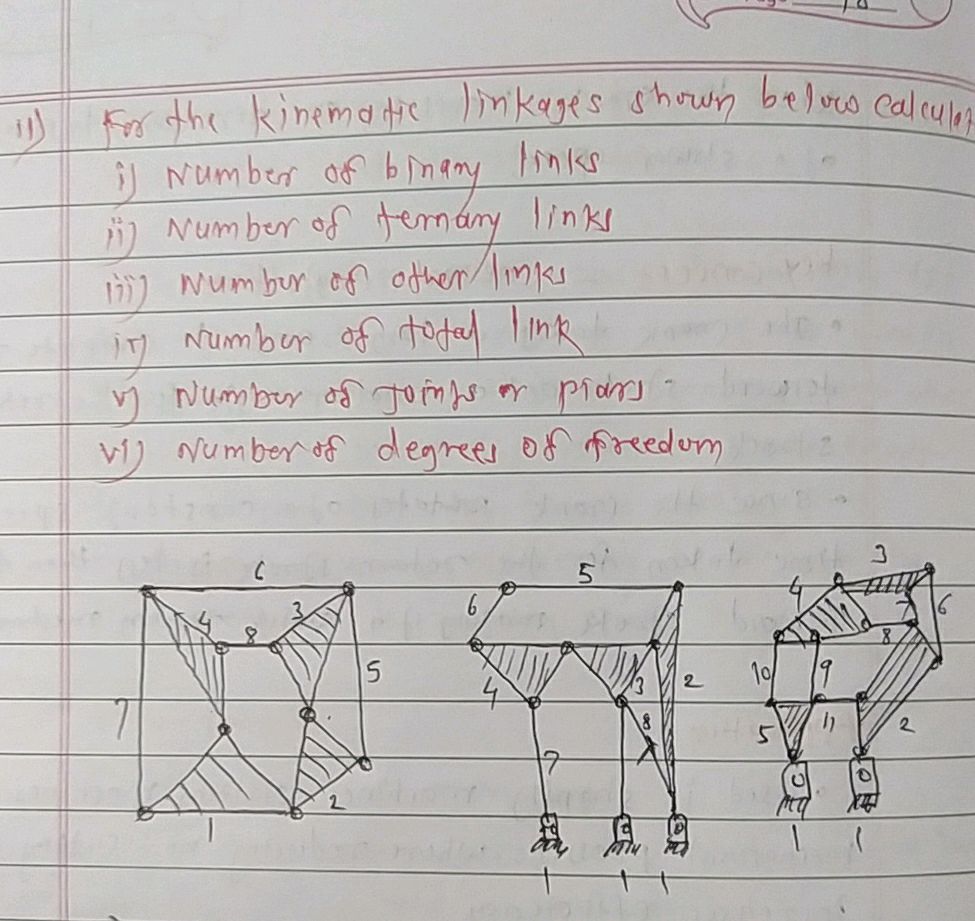 ii) For the kinematic linkages shown below calculat
i) Number of binary links
ii) Number of ternary links
iii) Number of other links
iv) Number of total link
v) Number of Joints or piars
vi) Number of degrees of freedom
6 5 3
4 3 6 4 7 6
8 8
7 5 4 3 2 10 9
8 5 11 2
7
1 2
1 1 1 1 1